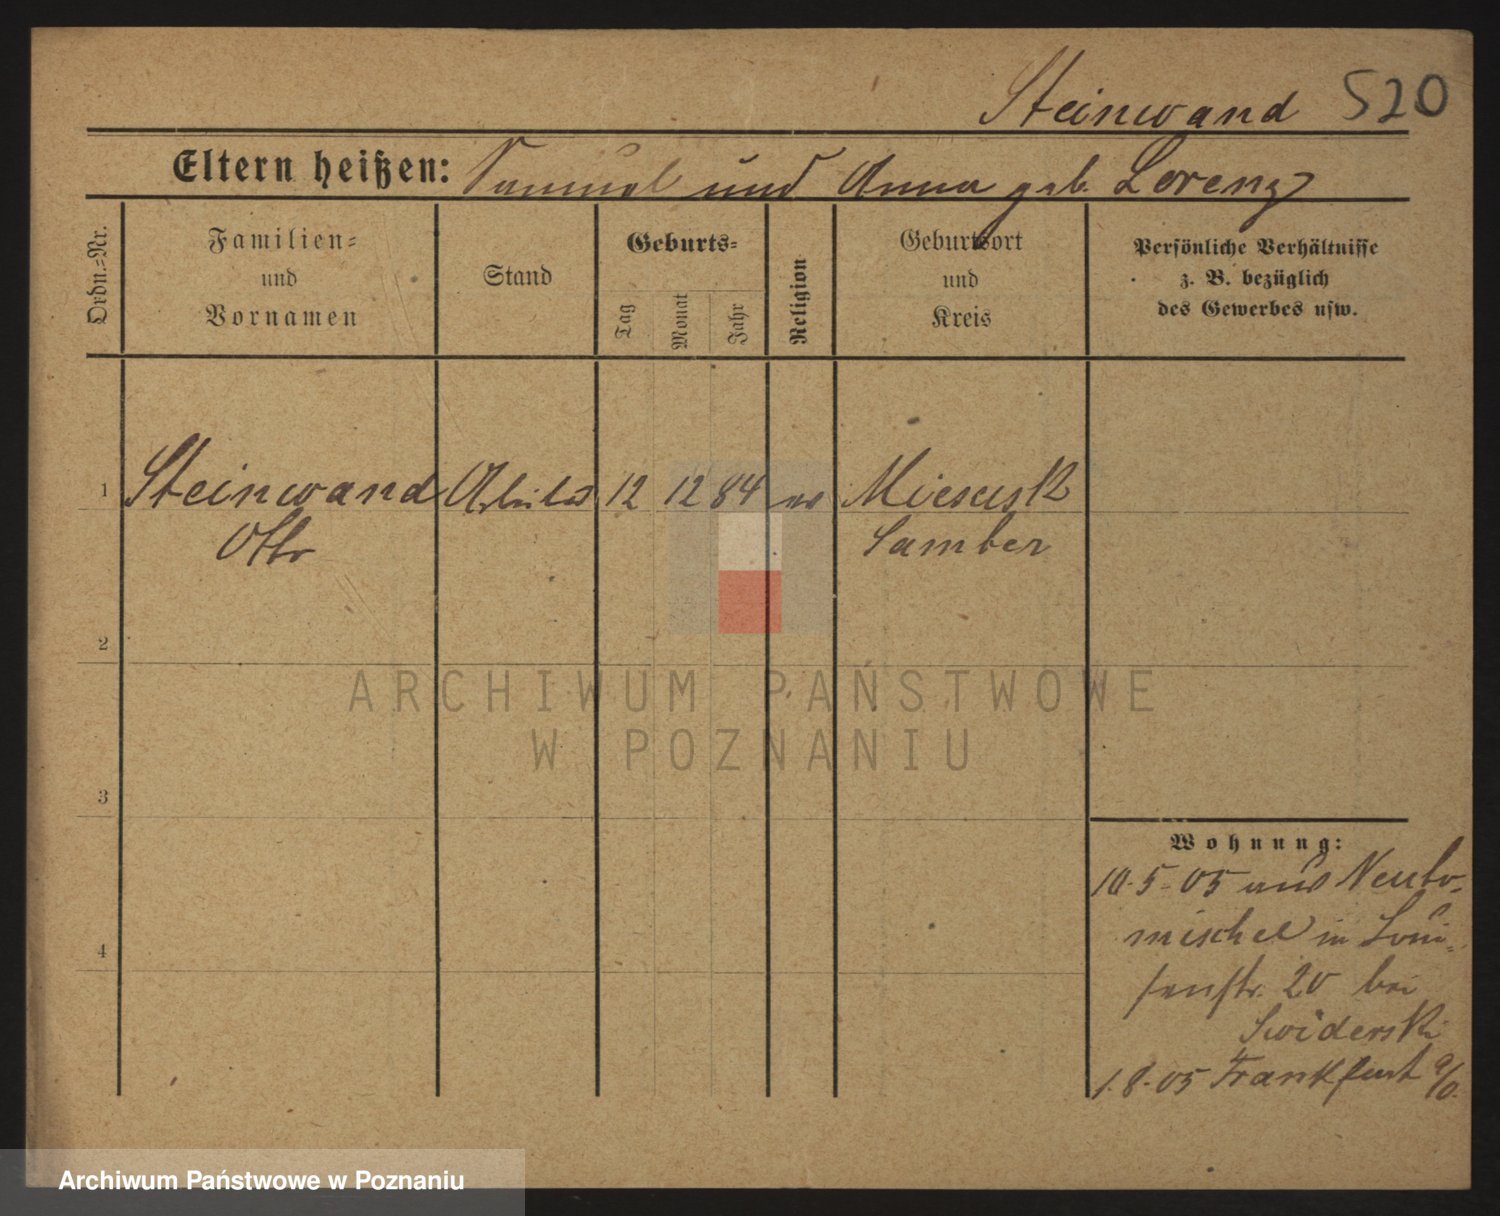 Steinwand 520
Eltern heißen: Samuel und Anna geb. Lorenz
Ordn.=Nr.
Familien=
und
Vornamen
Stand
Geburts=
Tag
Monat
Jahr
Religion
Geburtsort
und
Kreis
Persönliche Verhältnisse
z. B. bezüglich
des Gewerbes usw.
1 Steinwand Arbeiter 12 12 84 ev
Otto Samber
2
3
4
Wohnung:
10-5-05 aus Neuto-
mischel in Loui-
senstr. 20 bei
Swiderski
1.8.05 Frankfurt a/O.
ARCHIWUM PAŃSTWOWE
W POZNANIU
Archiwum Państwowe w Poznaniu